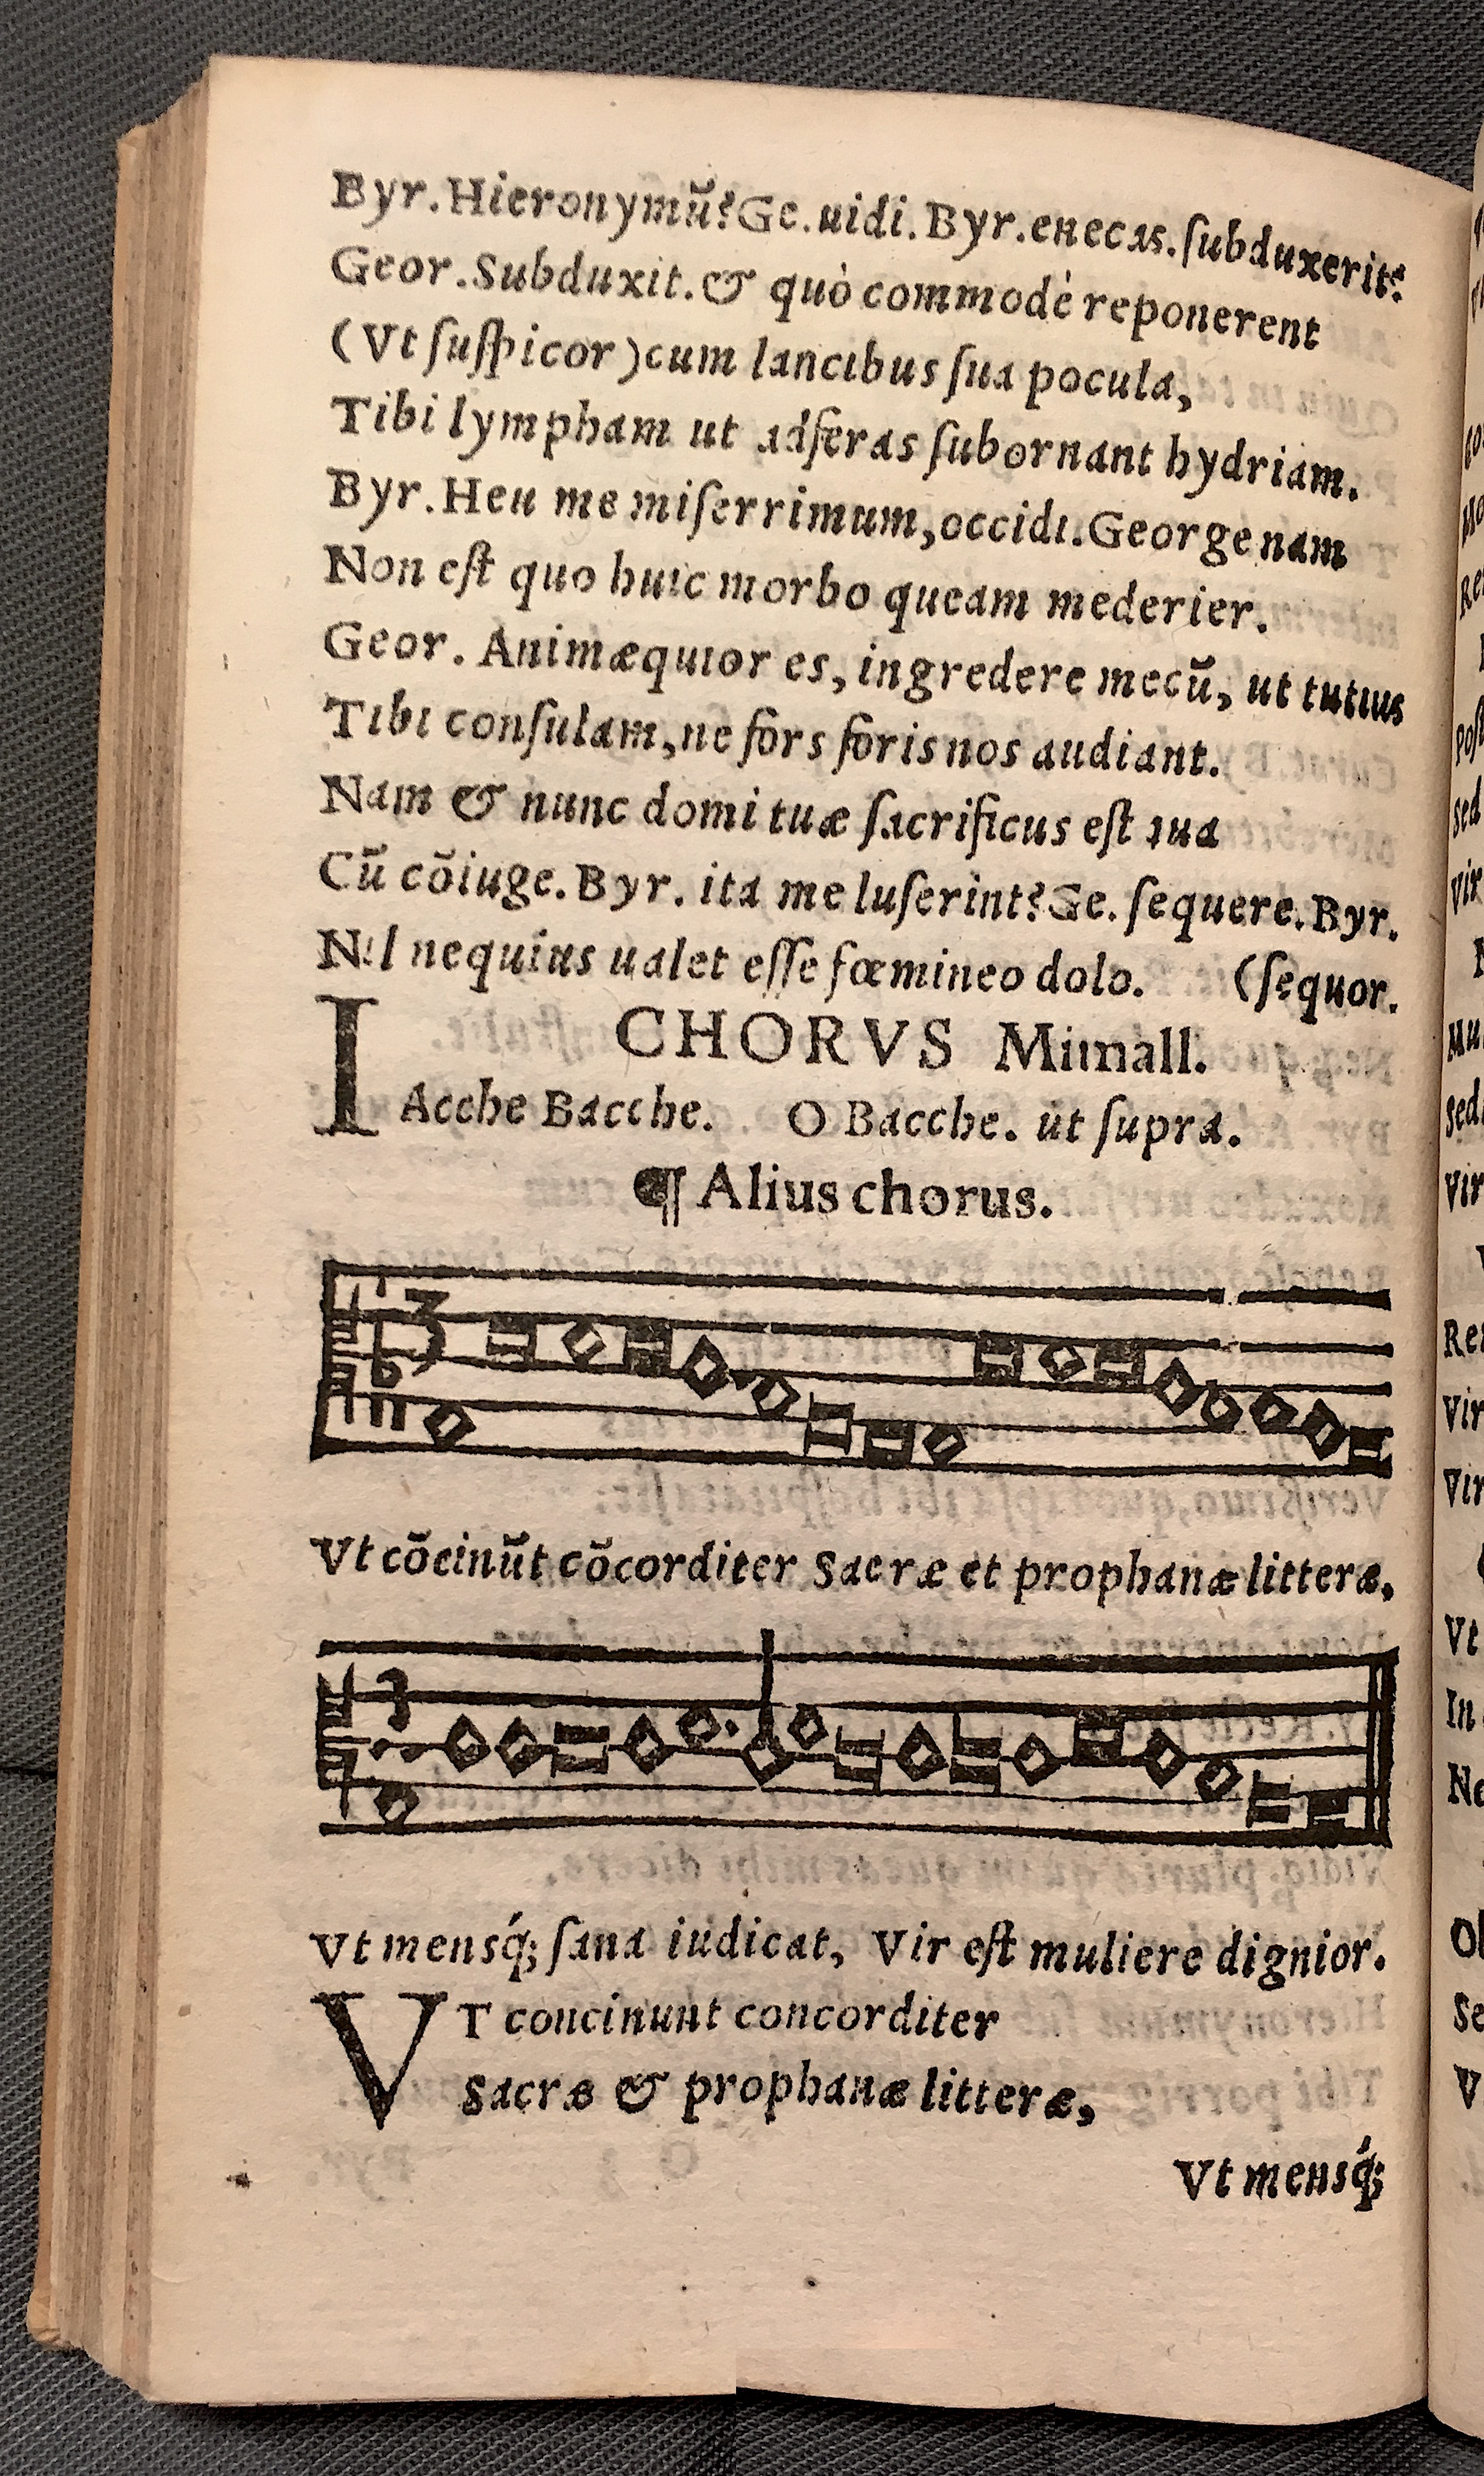 Byr. Hieronymũ? Ge. uidi. Byr. enecas. ſubduxerit?
Geor. Subduxit. & quò commodè reponerent
(Vt ſuſpicor) cum lancibus ſua pocula,
Tibi lympham ut adferas ſubornant hydriam.
Byr. Heu me miſerrimum, occidi. George nam
Non eſt quo huic morbo queam mederier.
Geor. Animæquior es, ingredere mecũ, ut tutius
Tibi conſulam, ne fors foris nos audiant.
Nam & nunc domi tuæ ſacrificus eſt tua
Cũ cõiuge. Byr. ita me luſerint? Ge. ſequere. Byr.
Nil nequius ualet eſſe fœmineo dolo. (ſequor.
CHORVS Mimall.
IAcche Bacche. O Bacche. ut ſupra.
¶ Alius chorus.
3
Vt cõcinũt cõcorditer Sacræ et prophanæ litteræ,
Vt mensq́; ſana iudicat, Vir eſt muliere dignior.
VT concinunt concorditer
Sacræ & prophanæ litteræ,
Vt mensq́;